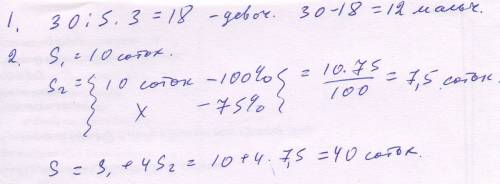 1. 30 : 5 . 3 = 18 - девоч. 30-18 = 12 мальч.
2. S₁ = 10 соток.
S₂ = { 10 соток - 100% } = 10.75 / 100 = 7,5 соток.
x - 75%
S = S₁ + 4S₂ = 10 + 4 . 7,5 = 40 соток.